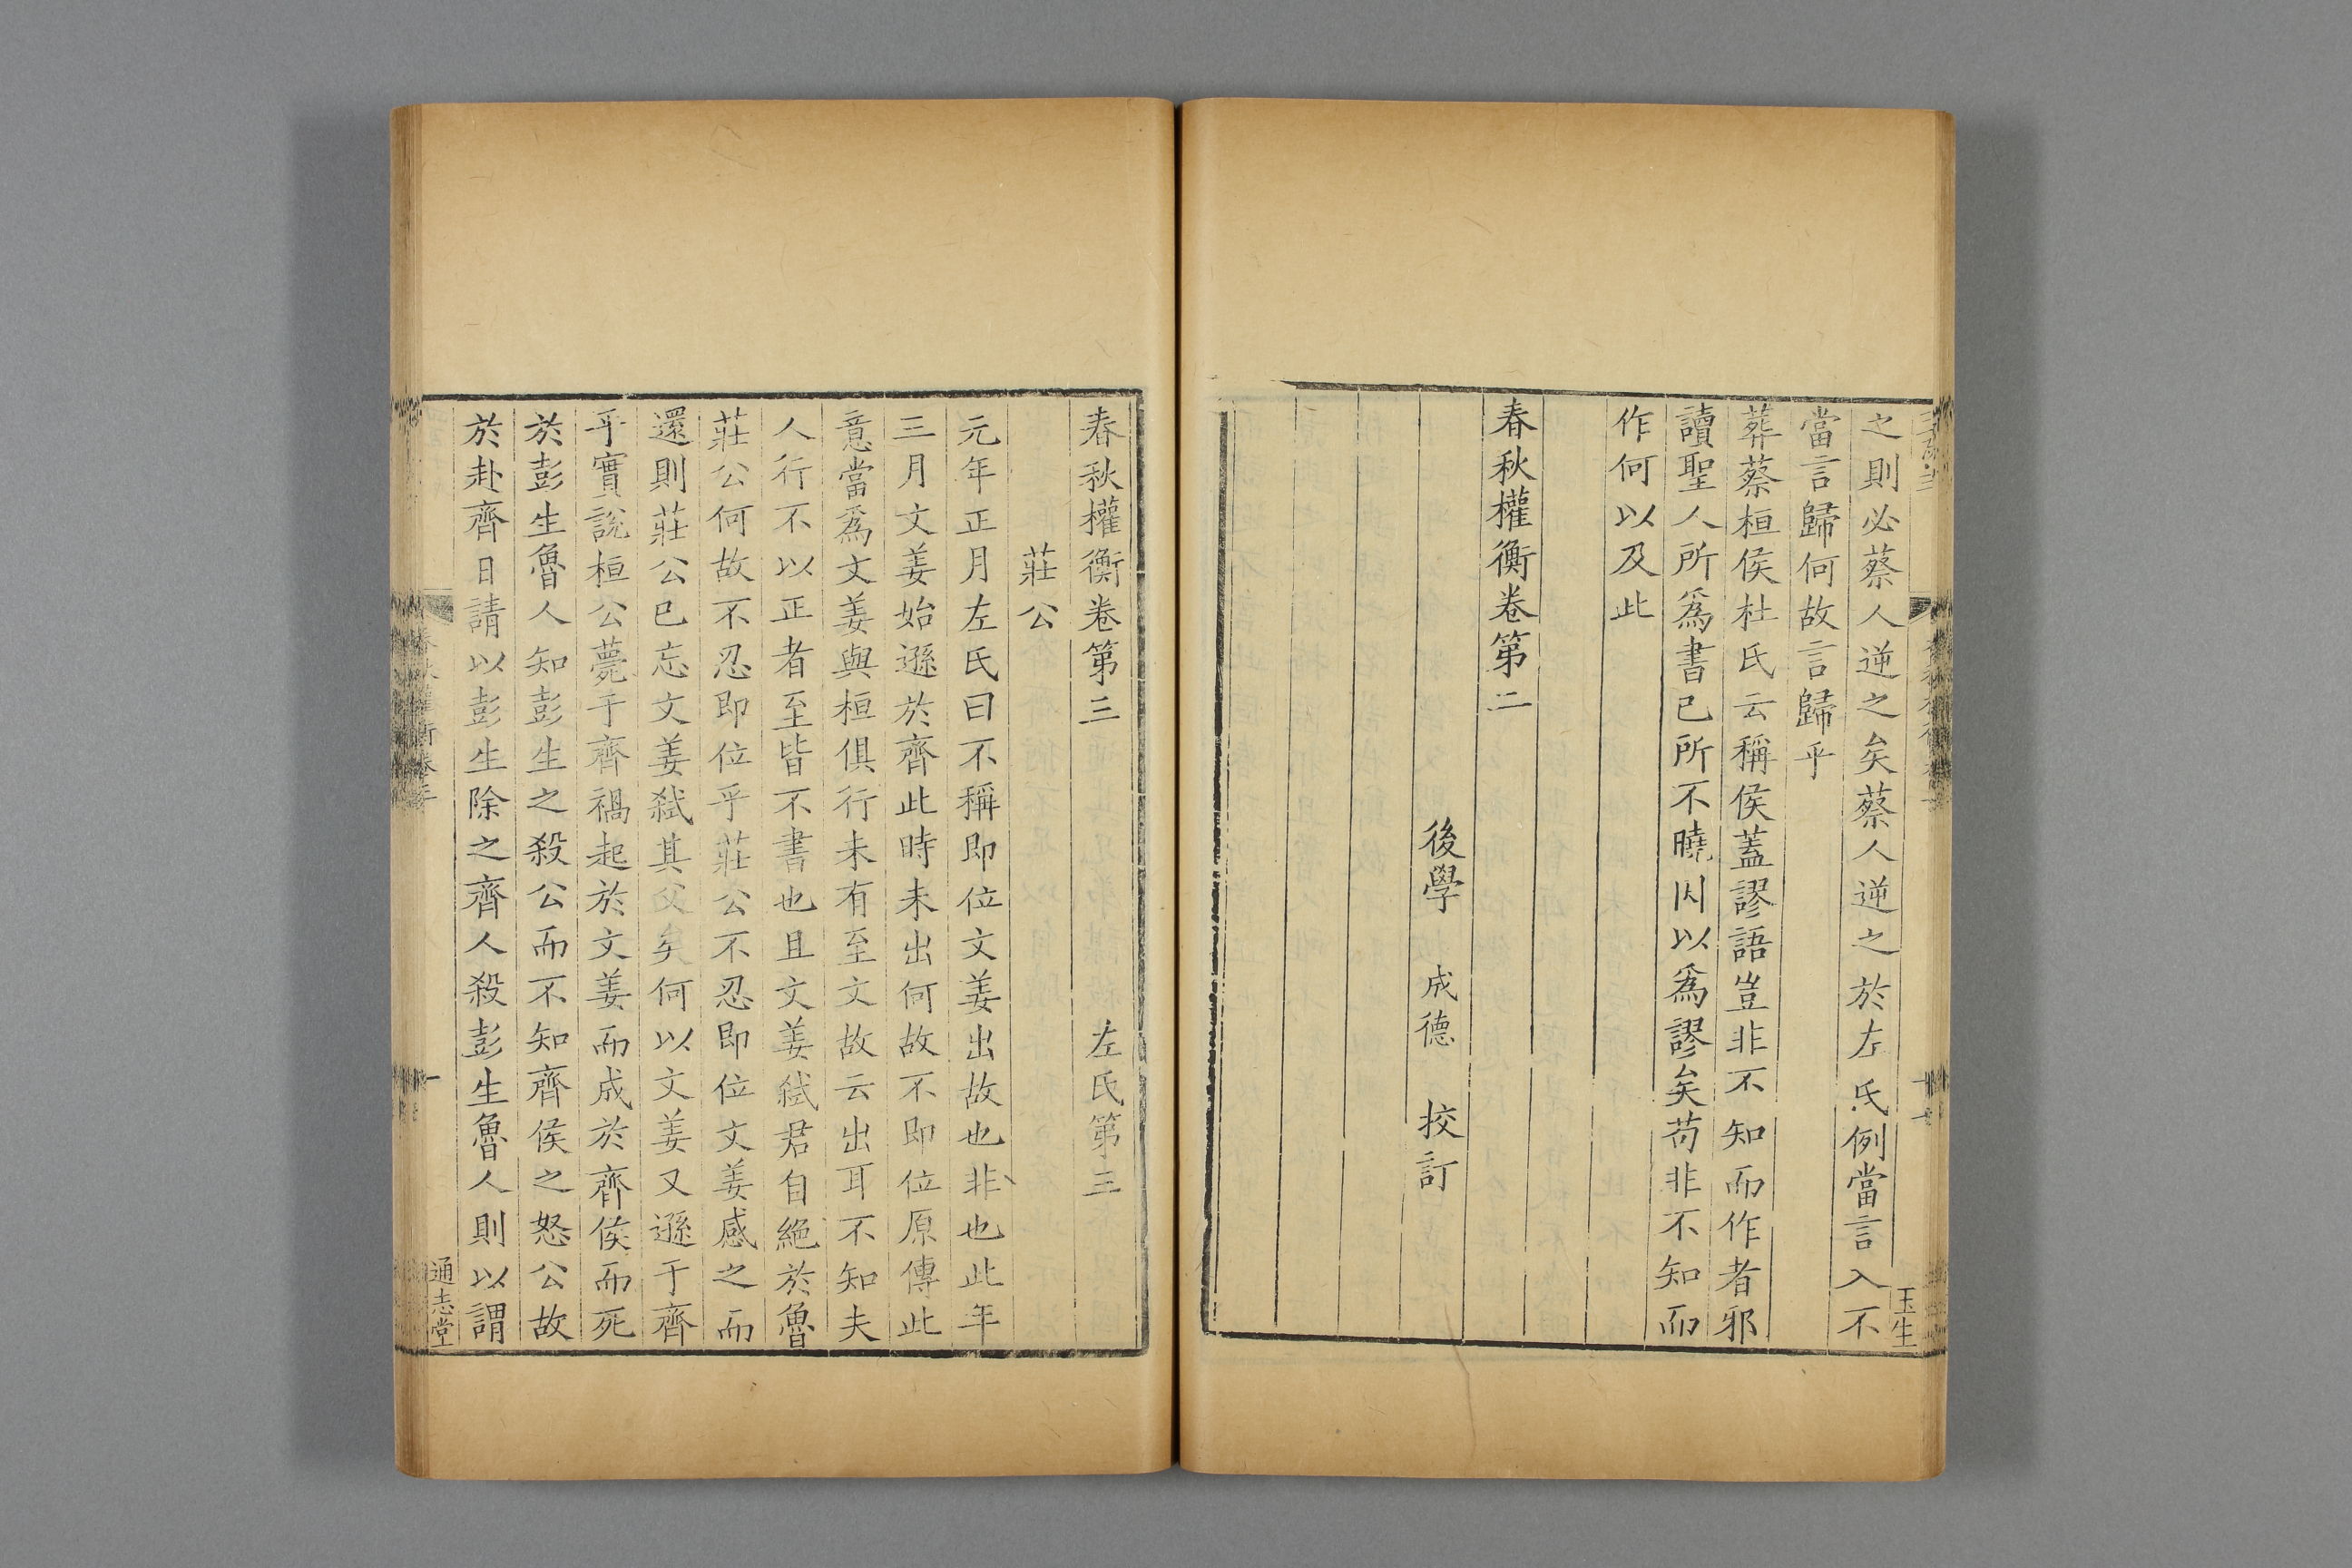 之則必蔡人逆之矣蔡人逆之於左氏例當言入不
當言歸何故言歸乎
葬蔡桓侯杜氏云稱侯蓋謬語豈非不知而作者邪
讀聖人所爲書已所不曉因以爲謬矣苟非不知而
作何以及此
春秋權衡卷第二
後學 成德 挍訂
玉生
春秋權衡卷第三 左氏第三
莊公
元年正月左氏曰不稱即位文姜出故也非也此年
三月文姜始遜於齊此時未出何故不即位原傳此
意當爲文姜與桓俱行未有至文故云出耳不知夫
人行不以正者至皆不書也且文姜弑君自絶於魯
莊公何故不忍即位乎莊公不忍即位文姜感之而
還則莊公已忘文姜弑其父矣何以文姜又遜于齊
乎實說桓公薨于齊禍起於文姜而成於齊侯而死
於彭生魯人知彭生之殺公而不知齊侯之怒公故
於赴齊日請以彭生除之齊人殺彭生魯人則以謂
春秋權衡卷三
一
通志堂